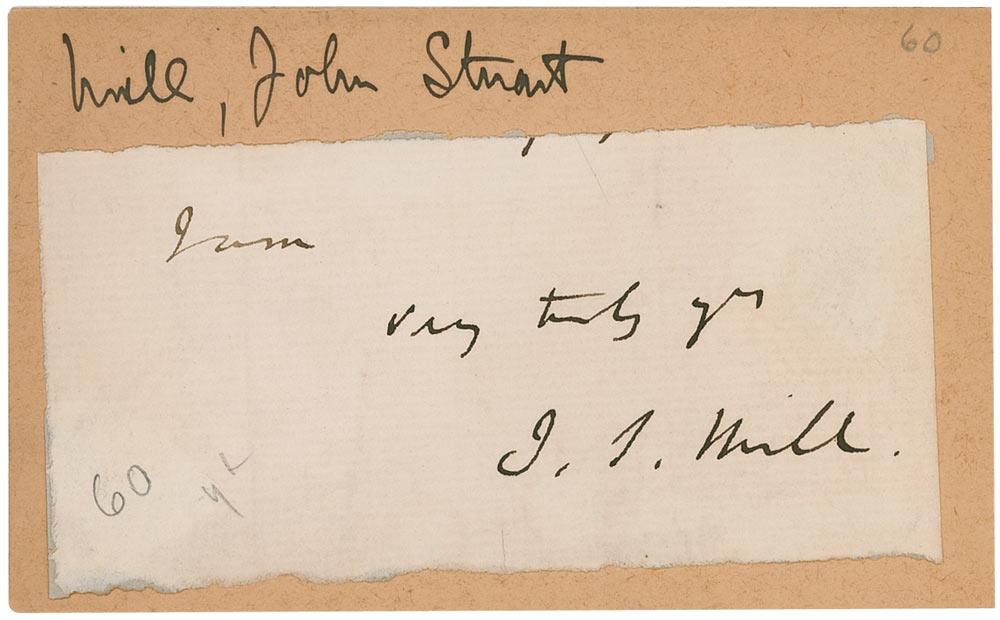 Mill, John Stuart
60
I am
very truly yrs
J. S. Mill.
60